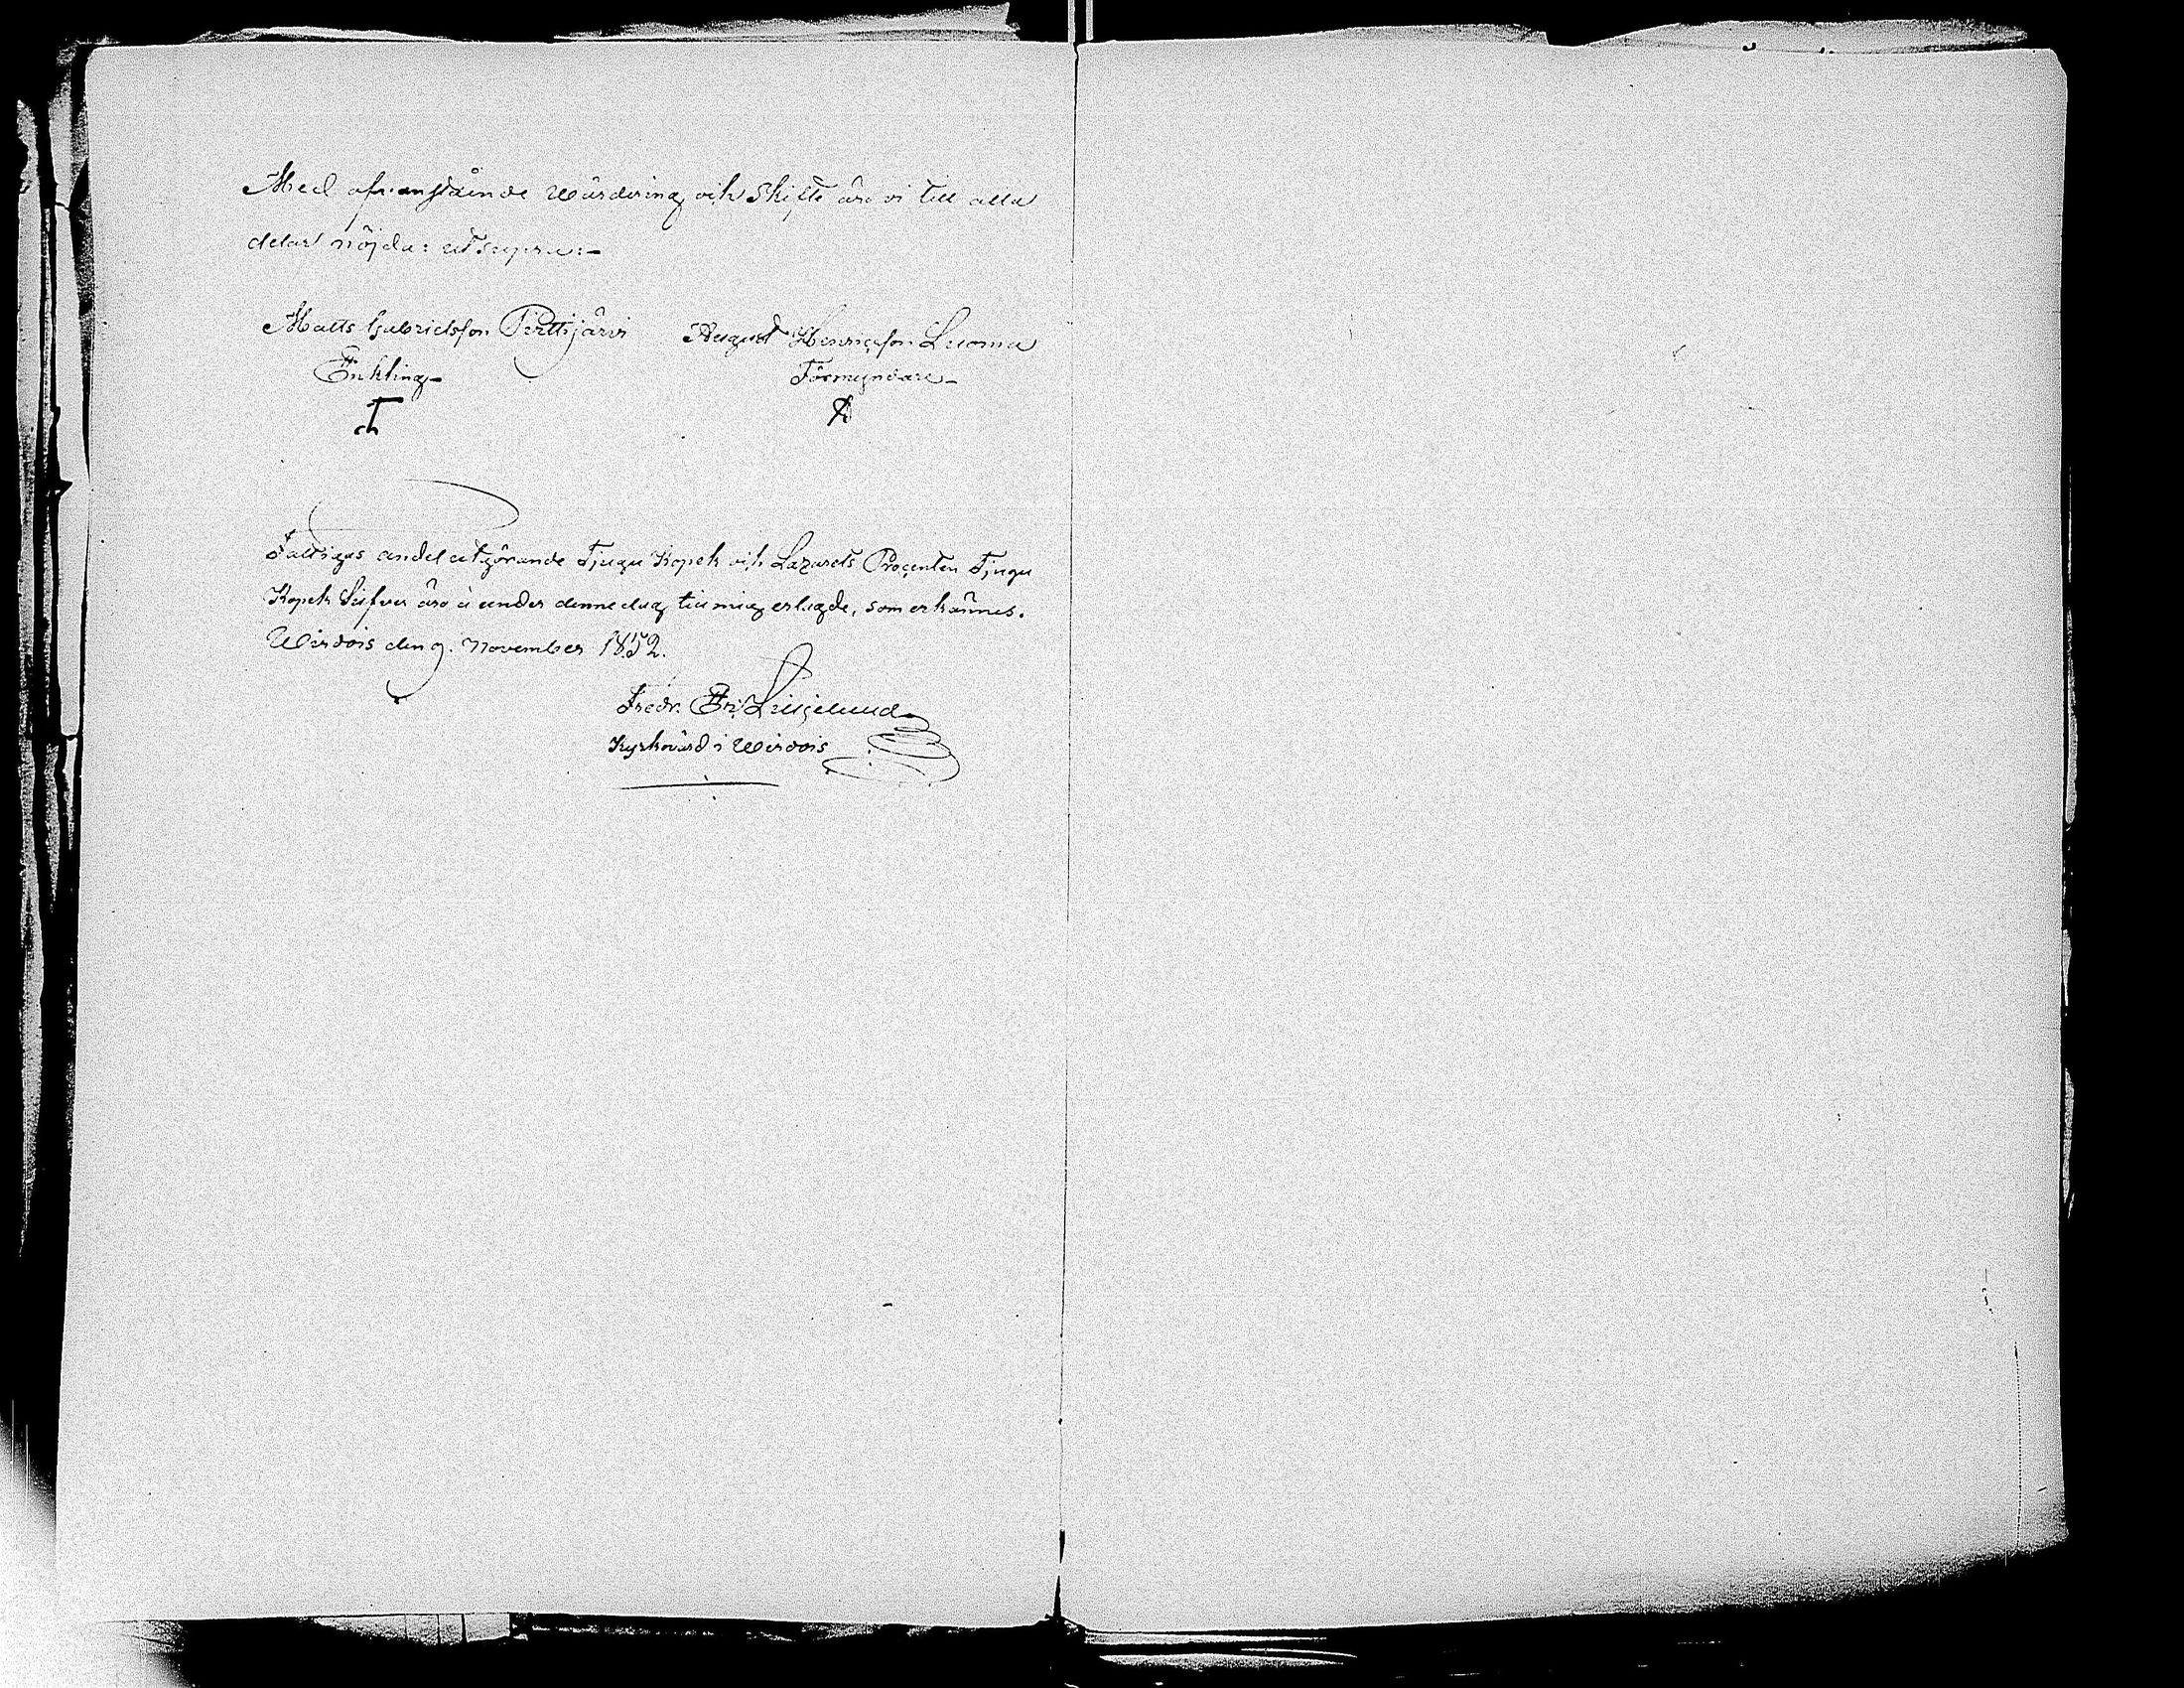 Med ofvanstående Wärdering och Skifte äro vi till alla
delar nöjda: ut supra:-
Matts Gabrielsson Perttijärvi August Henricsson Luoma
Enkling- Förmyndare-
Fattigas andel utgörande Tjugu Kopek och Lazarets Procenten Tjugu
Kopek Silfver äro i under denne dag till mig erlagde, som erkännes.
Wirdois den 9. November 1852.
Fredr. Er. Liljelund
Kyrkovärd i Wirdois